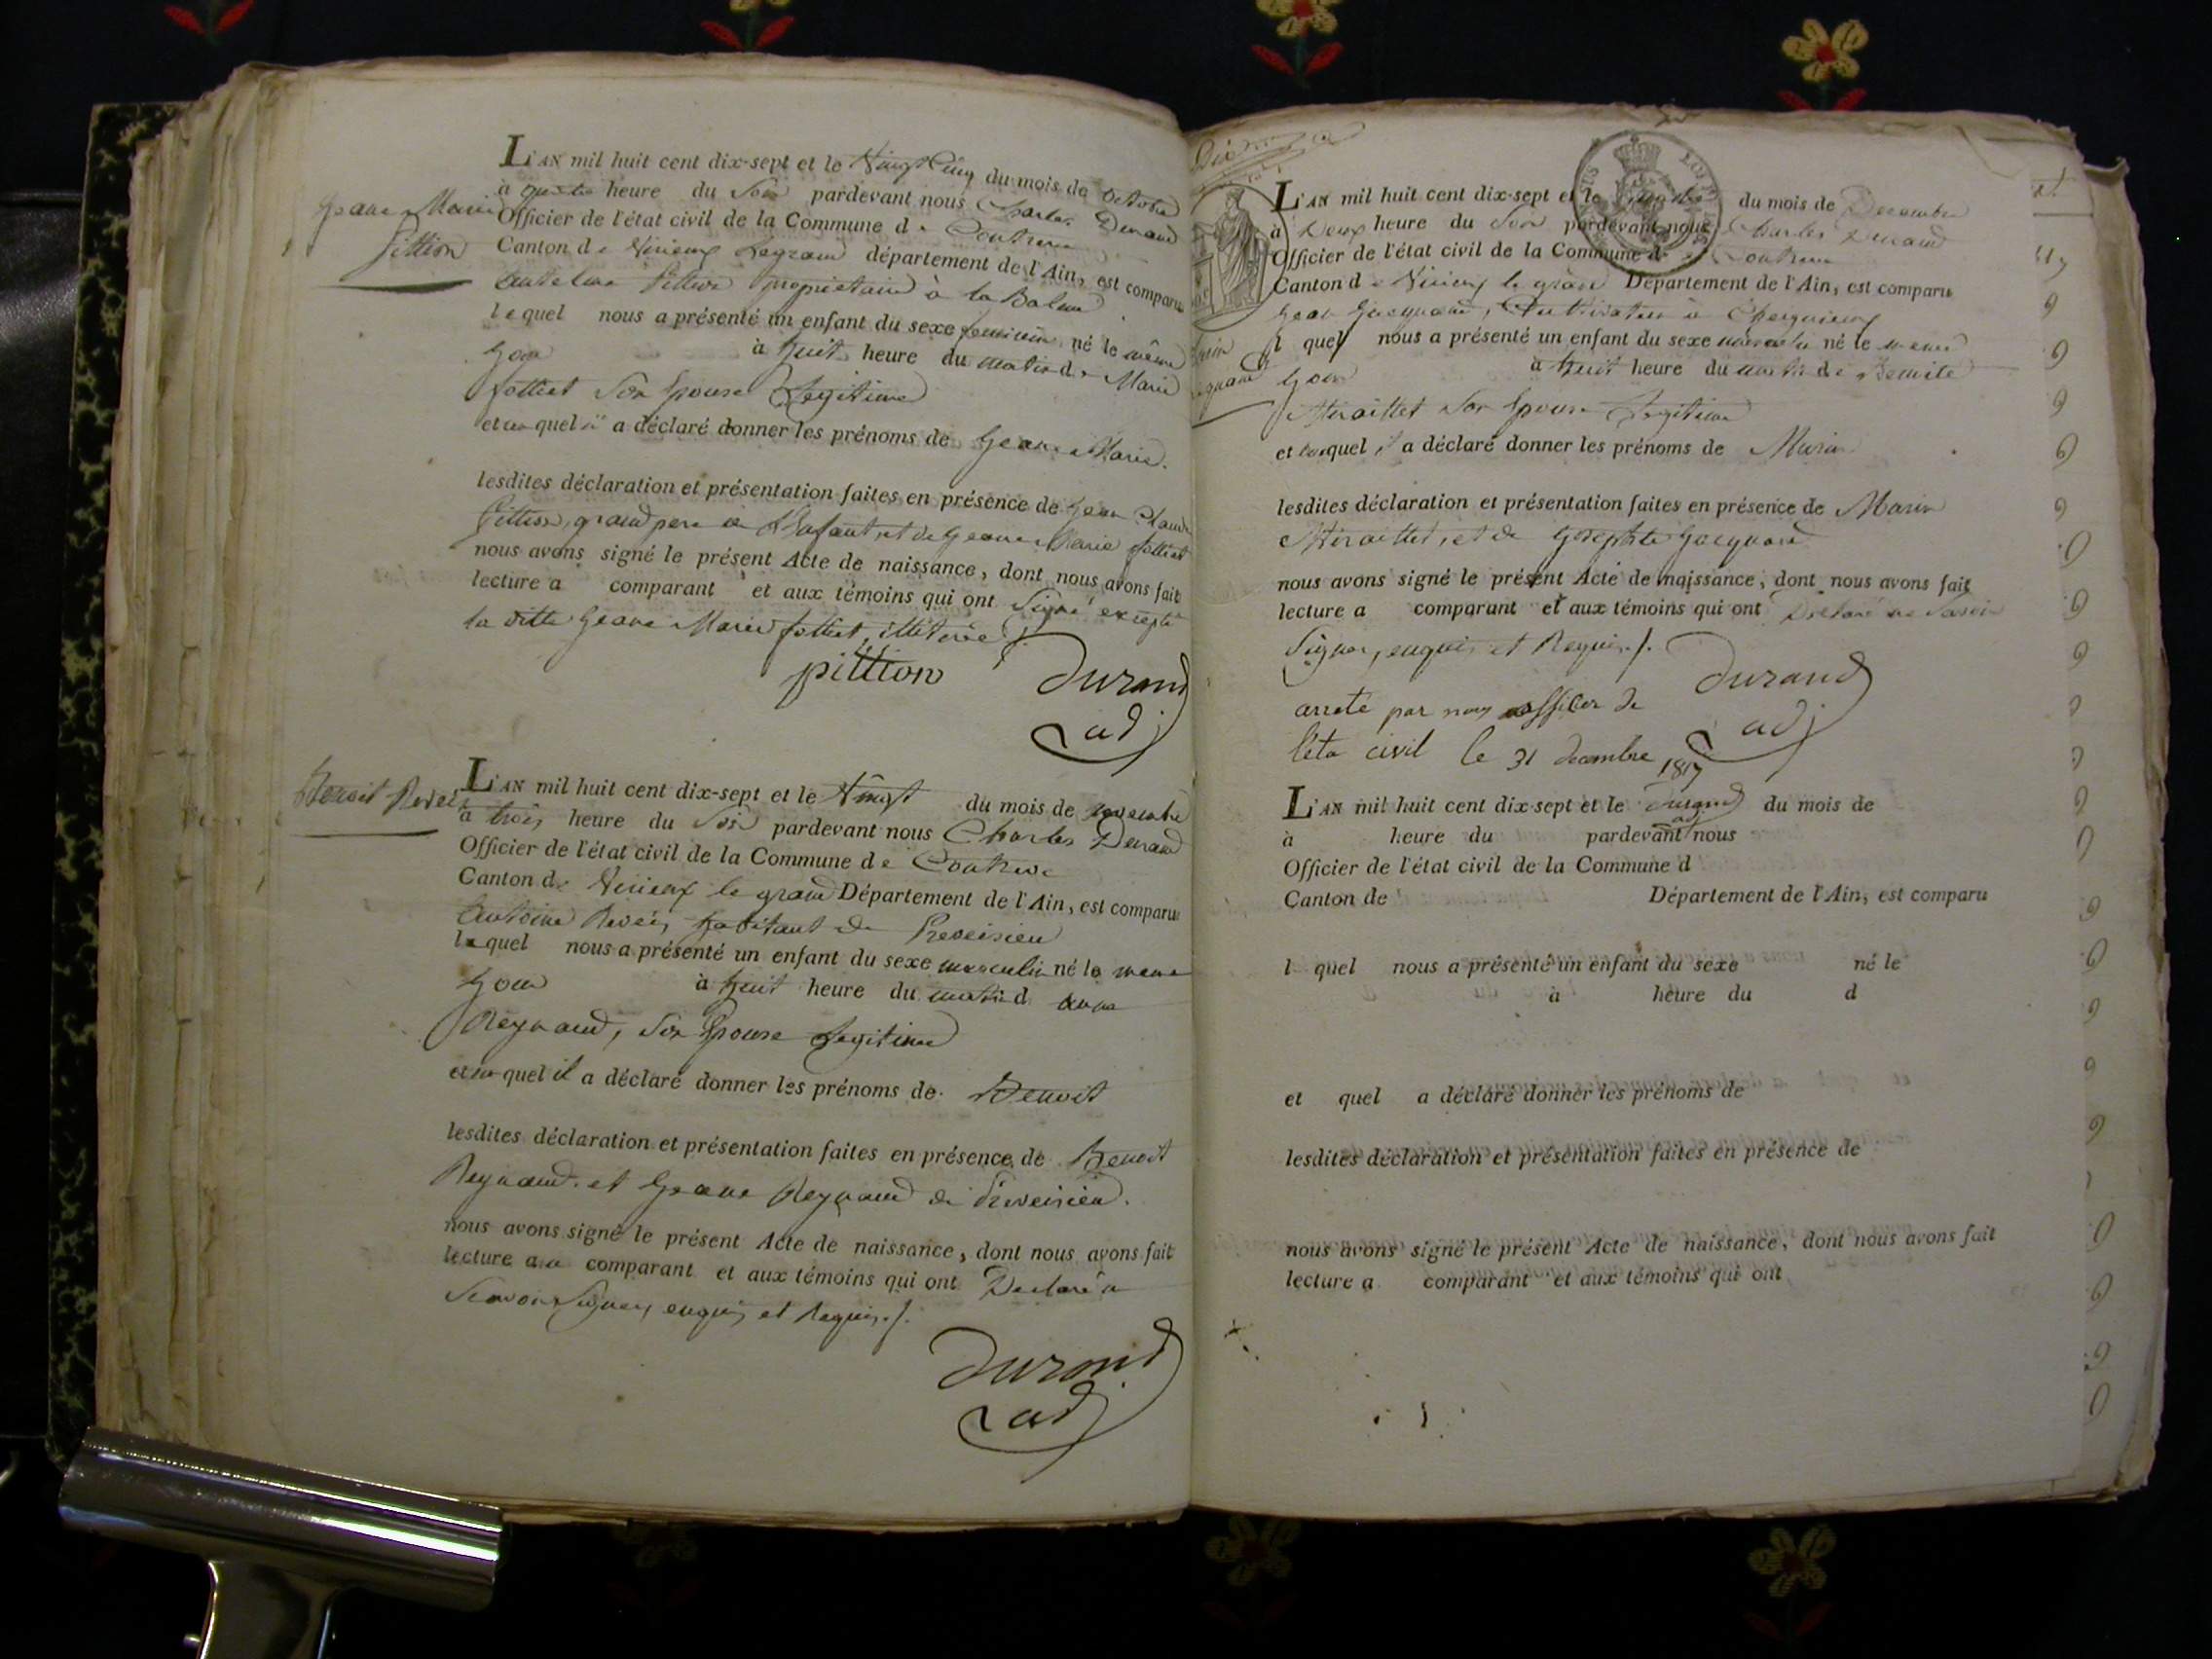 L'AN mil huit cent dix-sept et le Vingt Cinq du mois de octobre
à quatre heure du Soir pardevant nous Charles Durand
Officier de l'état civil de la Commune de Contrevoz
Canton de Virieux Legrand département de l'Ain, est comparu
Antelme Pittion propriétaire à la Balme
lequel nous a présenté un enfant du sexe feminin né le même
Jour à huit heure du matin de Marie
son Epouse Legitime
et auquel il a déclaré donner les prénoms de Jeane Marie.
lesdites déclaration et présentation faites en présence de Jean Claude
Pittion, grand pere de L'Enfant, et de Jeane Marie
nous avons signé le présent Acte de naissance, dont nous avons fait
lecture a comparant et aux témoins qui ont Signé excepté
la ditte Jeane Marie illiterée
pittion Durand
adj
Jeane Marie
Pittion
Benoit Reveis
L'AN mil huit cent dix-sept et le Vingt du mois de novembre
à trois heure du Soir pardevant nous Charles Durand
Officier de l'état civil de la Commune de
Canton de Virieux le grand Département de l'Ain, est comparu
Antoine habitant de Preveisieu
lequel nous a présenté un enfant du sexe masculin né le meme
Jour à huit heure du matin d anne
Reynaud, son Epouse Legitime
et auquel il a déclaré donner les prénoms de Benoit
lesdites déclaration et présentation faites en présence de Benoit
Reynaud et Jeane Reynaud de Preveisieu.
nous avons signé le présent Acte de naissance, dont nous avons fait
lecture au comparant et aux témoins qui ont Declaré n
Scavoir Signer, enquis et Requis ./.
Durand
adj
L'AN mil huit cent dix-sept et le du mois de Decembre
à Deux heure du Soir pardevant nous Charles Durand
Officier de l'état civil de la Commune de
Canton de Virieux le grand Département de l'Ain, est comparu
Jean Jacquand, Cultivateur à
l quel nous a présenté un enfant du sexe masculin né le meme
Jour à huit heure du matin de Benoite
Miraillet son Epouse Legitime
et auquel il a déclaré donner les prénoms de Marin
lesdites déclaration et présentation faites en présence de Marin
Miraillet, et de Josephte Jacquand
nous avons signé le présent Acte de naissance, dont nous avons fait
lecture a comparant et aux témoins qui ont Declaré ne Savoir
Signer, enquis et Requis ./.
Durand
adj
arreté par nous officier de
l'eta civil le 31 decembre 1817
Durand
adj
L'AN mil huit cent dix-sept et le du mois de
à heure du pardevant nous
Officier de l'état civil de la Commune d
Canton de Département de l'Ain, est comparu
l quel nous a présenté un enfant du sexe né le
à heure du d
et quel a déclaré donner les prénoms de
lesdites déclaration et présentation faites en présence de
nous avons signé le présent Acte de naissance, dont nous avons fait
lecture a comparant et aux témoins qui ont